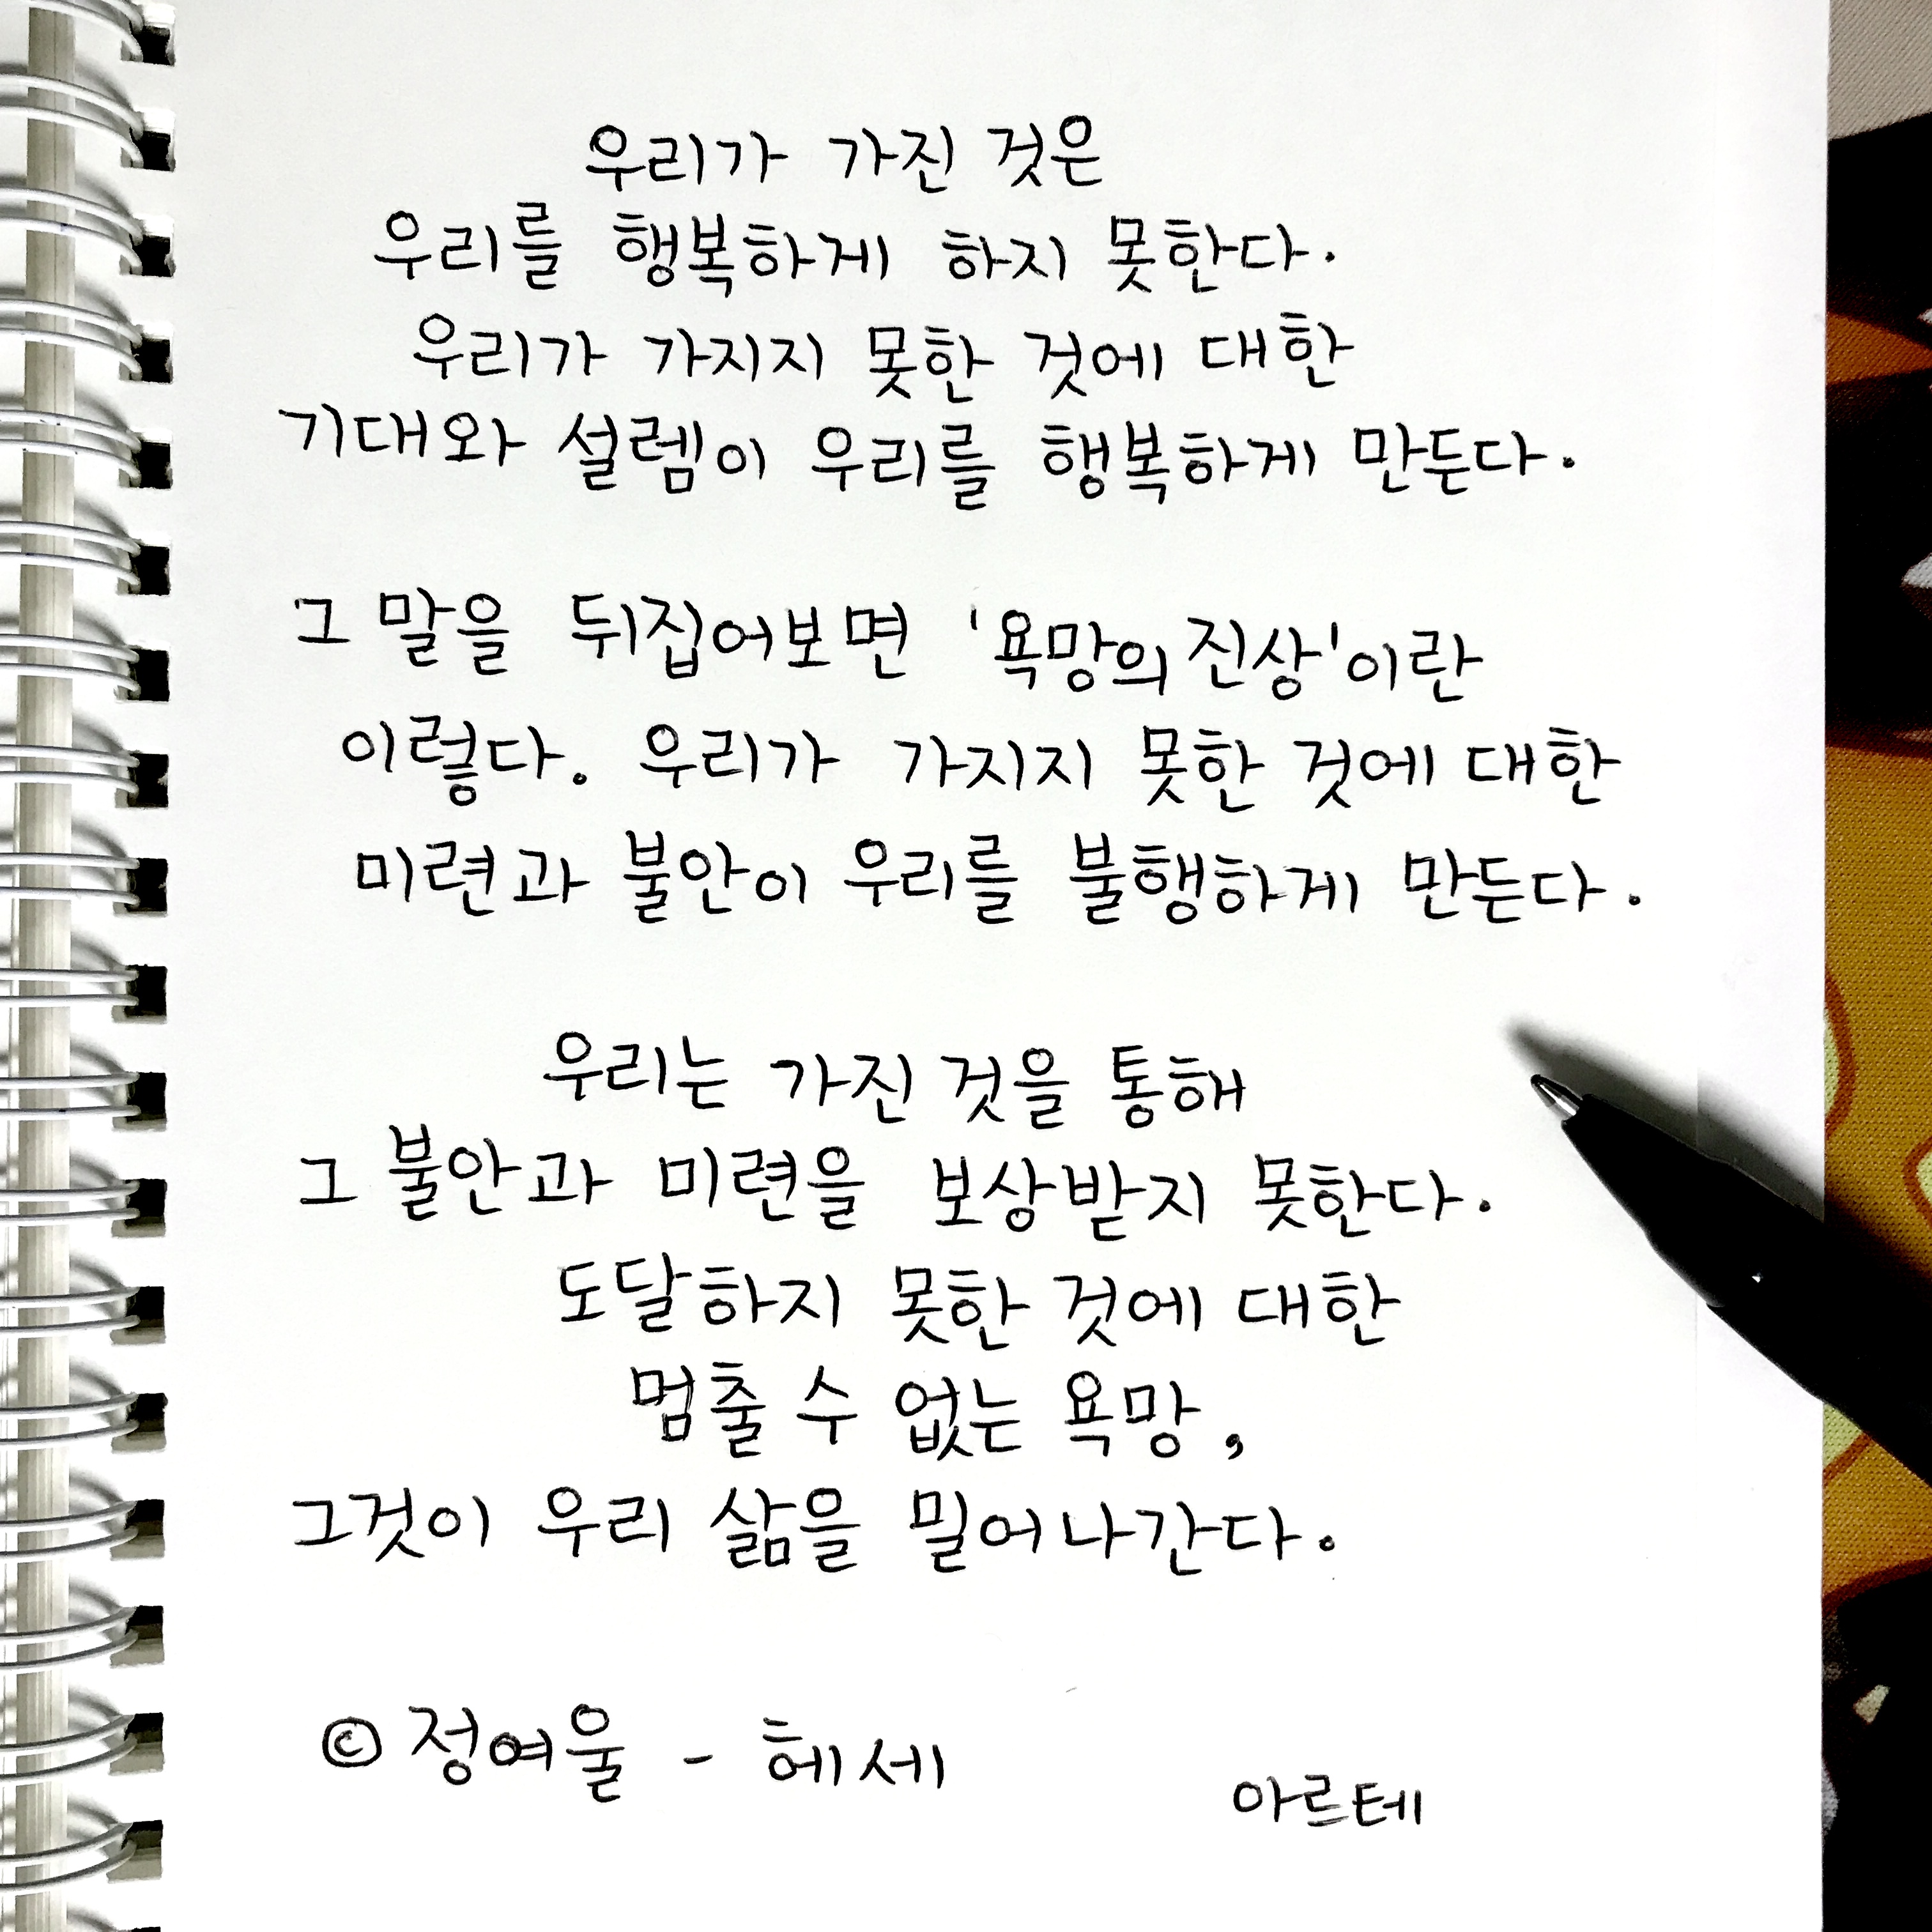 우리가 가진 것은
우리를 행복하게 하지 못한다.
우리가 가지지 못한 것에 대한
기대와 설렘이 우리를 행복하게 만든다.
그 말을 뒤집어보면 '욕망의 진상'이란
이렇다. 우리가 가지지 못한 것에 대한
미련과 불안이 우리를 불행하게 만든다.
우리는 가진 것을 통해
그 불안과 미련을 보상받지 못한다.
도달하지 못한 것에 대한
멈출 수 없는 욕망,
그것이 우리 삶을 밀어나간다.
© 정여울 - 헤세
아르테